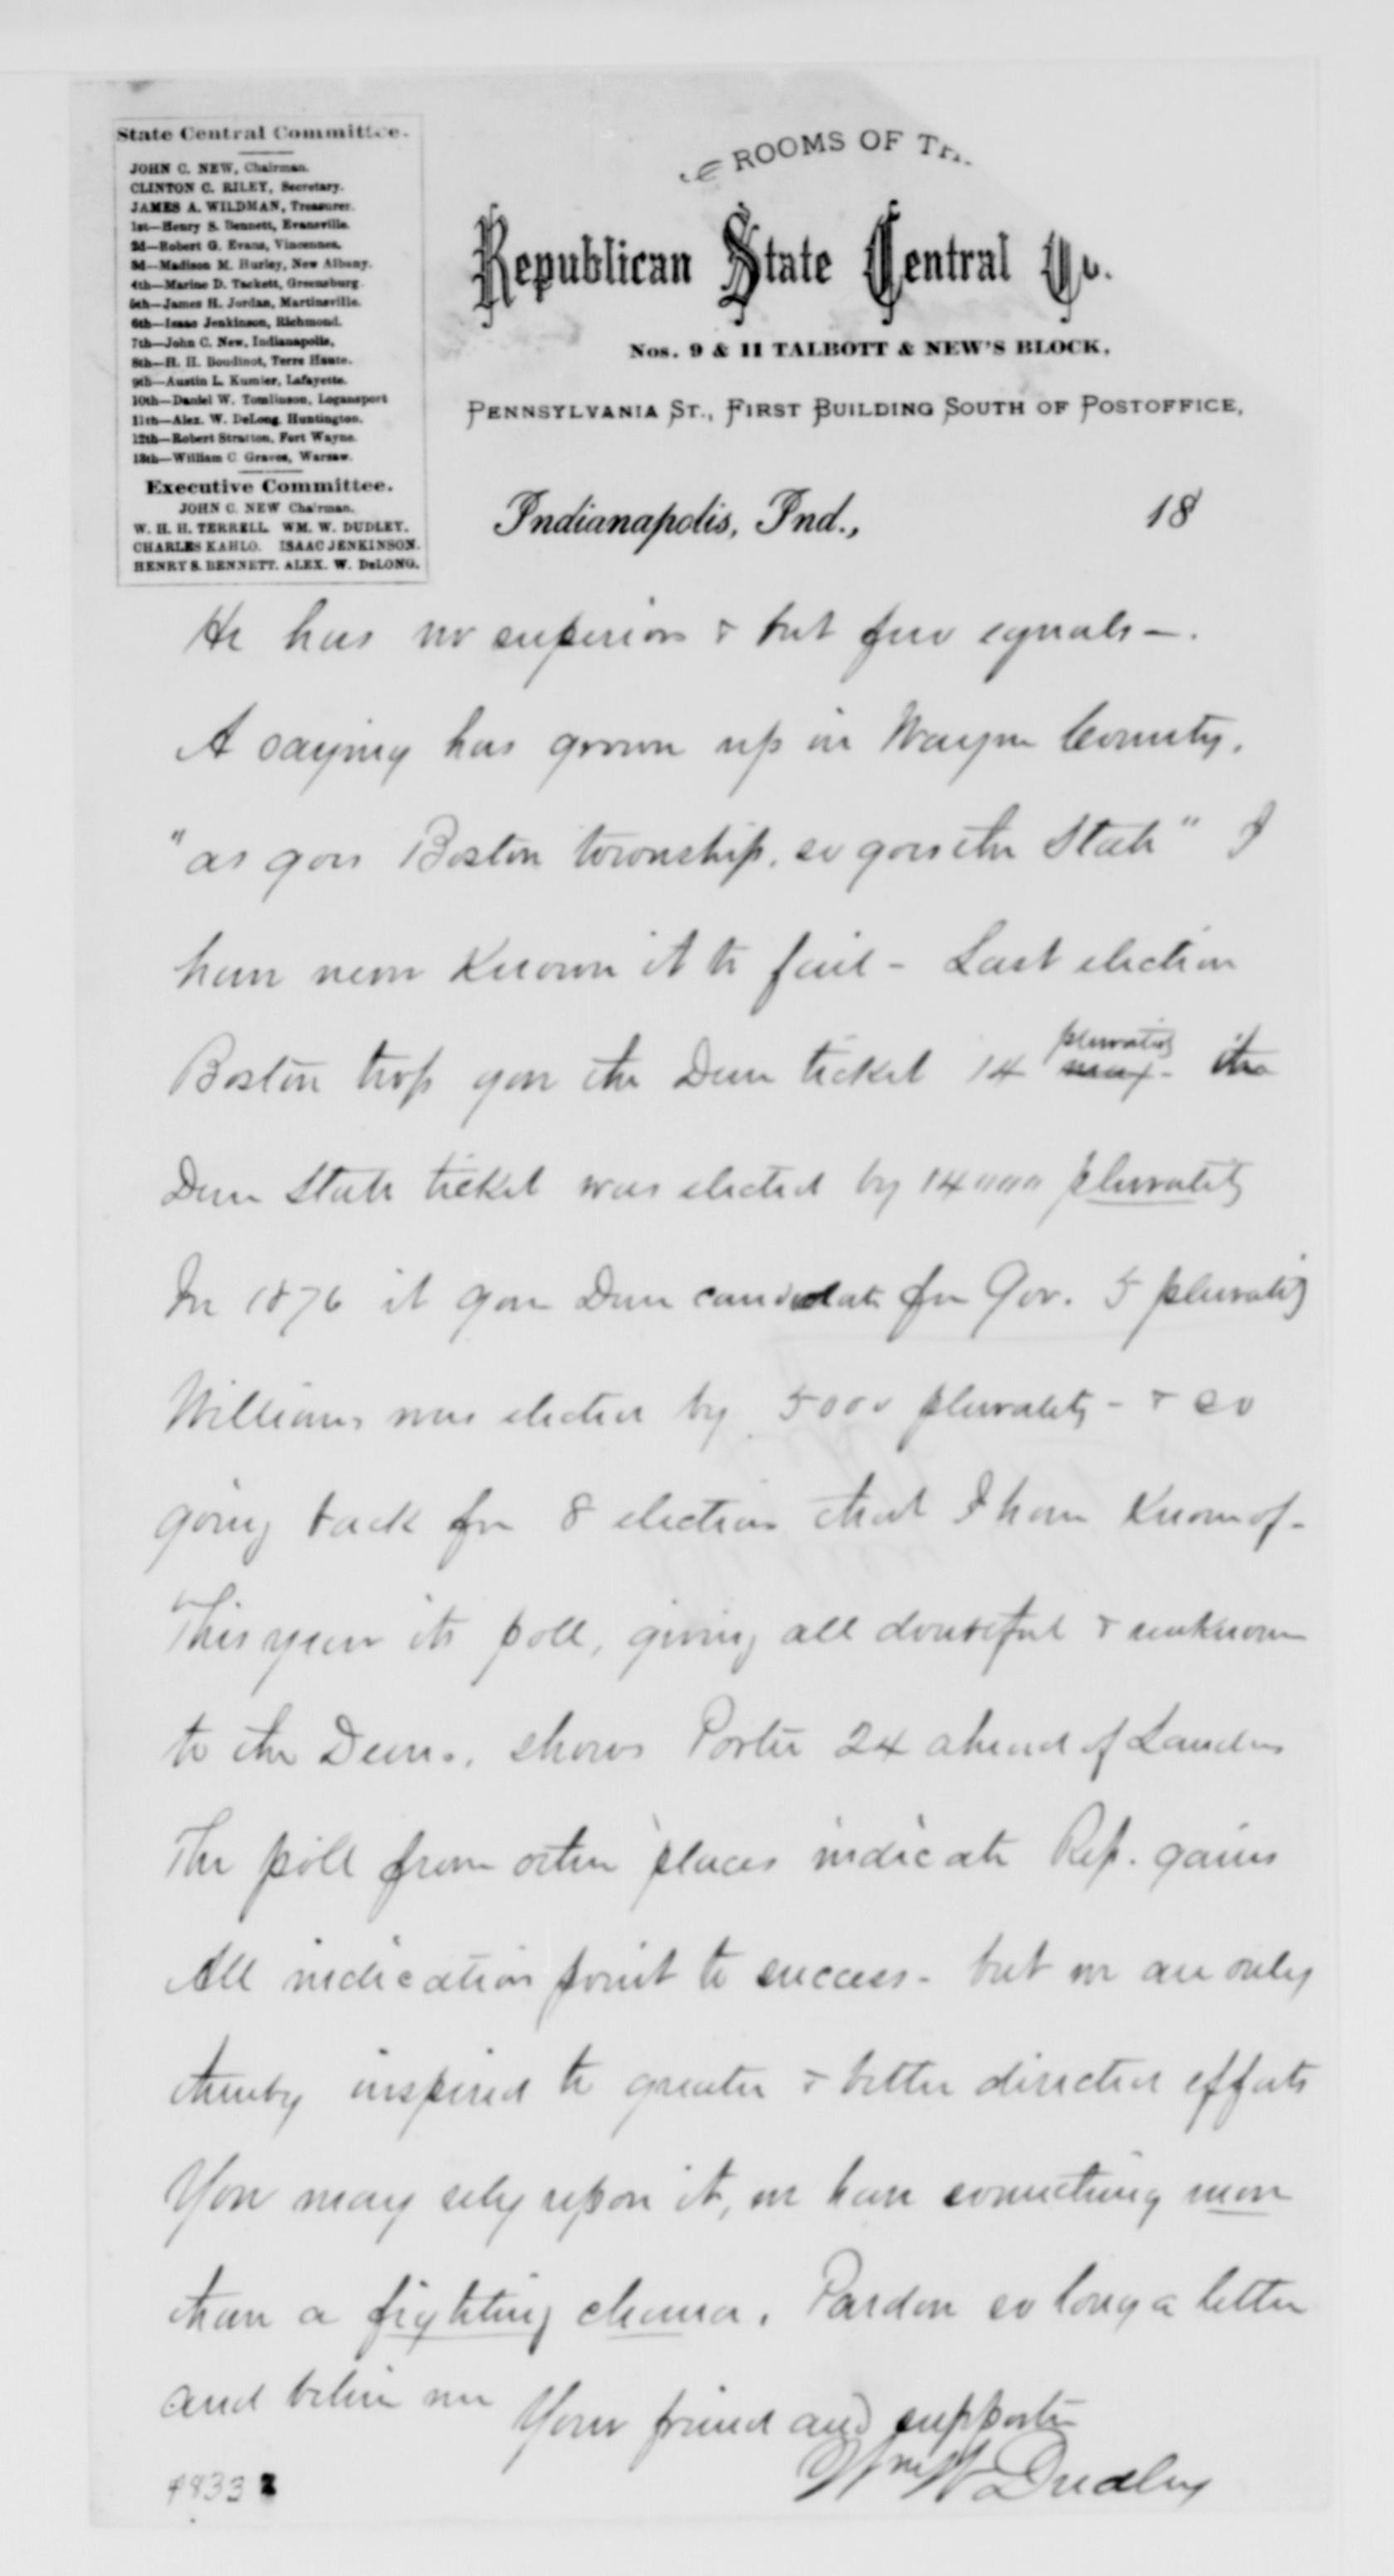 State Central Committee.
JOHN C. NEW, Chairman.
CLINTON C. RILEY, Secretary.
JAMES A. WILDMAN, Treasurer.
1st—Henry S. Bennett, Evansville.
2d—Robert G. Evans, Vincennes.
3d—Madison M. Hurley, New Albany.
4th—Marine D. Tackett, Greensburg.
5th—James H. Jordan, Martinsville.
6th—Isaac Jenkinson, Richmond.
7th—John C. New, Indianapolis,
8th—H. H. Boudinot, Terre Haute.
9th—Austin L. Kumler, Lafayette.
10th—Daniel W. Tomlinson, Logansport
11th—Alex. W. DeLong, Huntington.
12th—Robert Stratton, Fort Wayne.
13th—William C Graves, Warsaw.
Executive Committee.
JOHN C. NEW Chairman.
W. H. H. TERRELL. WM. W. DUDLEY.
CHARLES KAHLO. ISAAC JENKINSON.
HENRY S. BENNETT. ALEX. W. DeLONG.
ROOMS OF
Republican State Central Co.
Nos. 9 & 11 TALBOTT & NEW'S BLOCK,
PENNSYLVANIA ST., FIRST BUILDING SOUTH OF POSTOFFICE,
Indianapolis, Ind., 18
He has no superiors & but few equals—.
A saying has grown up in Wayne County,
"as goes Boston township, so goes the State" I
have never known it to fail - Last election
Boston twp gave the Dem ticket 14 plurality maj- the
Dem State ticket was elected by 14000 plurality
In 1876 it gave Dem candidate for Gov. 5 plurality
Williams was elected by 5000 plurality - & so
going back for 8 elections that I have known of-
This year its poll, giving all doubtful & unknown
to the Dems., shows Porter 24 ahead of Landers
The poll from other places indicate Rep. gains
All indications point to success - but we are only
thereby inspired to greater & better directed efforts
You may rely upon it, we have something more
than a fighting chance. Pardon so long a letter
and believe me Your friend and supporter
Wm W Dudley